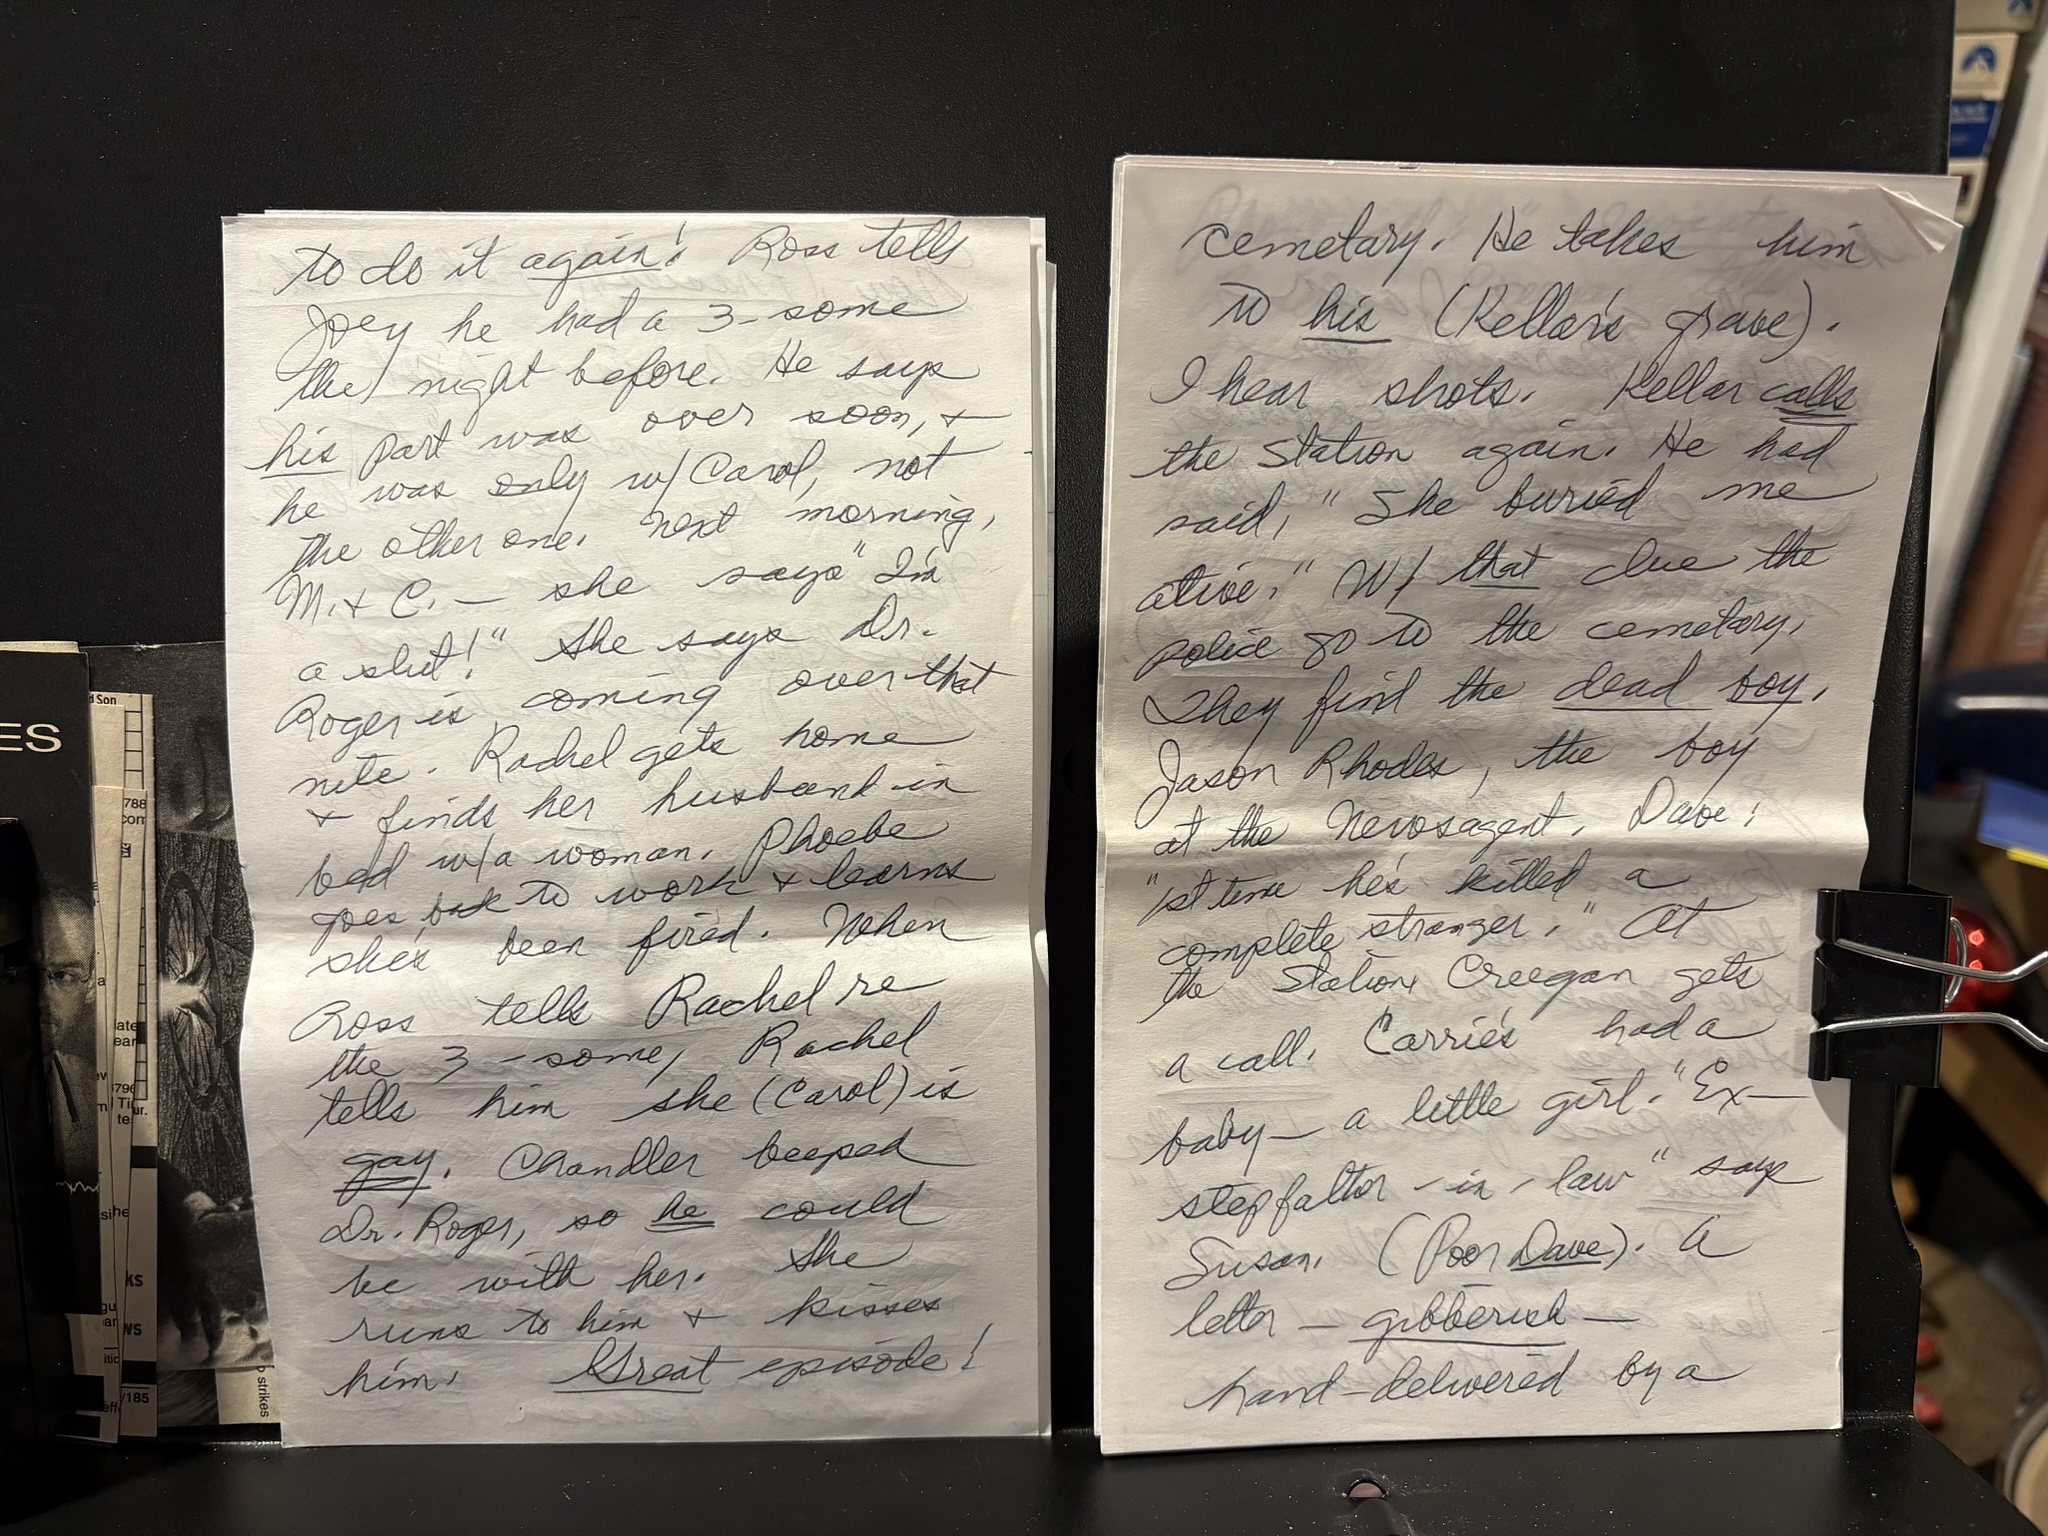 to do it again! Ross tells
Joey he had a 3-some
the night before. He says
his part was over soon, +
he was only w/ Carol, not
the other one. Next morning,
M. + C. — she says "I'm
a slut!" She says Dr.
Roger is coming over that
nite. Rachel gets home
+ finds her husband in
bed w/a woman. Phoebe
goes back to work + learns
she's been fired. When
Ross tells Rachel re
the 3-some, Rachel
tells him she (Carol) is
gay. Chandler beeped
Dr. Roger, so he could
be with her. She
runs to him + kisses
him. Great episode!
cemetary. He takes him
to his (Kellar's grave).
I hear shots. Kellar calls
the station again. He had
said, "She buried me
alive." W/ that clue the
police go to the cemetary.
They find the dead boy.
Jason Rhodes, the boy
at the Newsagent. Dave:
"1st time he's killed a
complete stranger." At
the Station Creegan gets
a call. Carrie's had a
baby — a little girl. "Ex—
stepfather-in-law" says
Susan. (Poor Dave). A
letter — gibberish —
hand-delivered by a
ES
d Son
788
com
796
Tir
ur.
/185
strikes